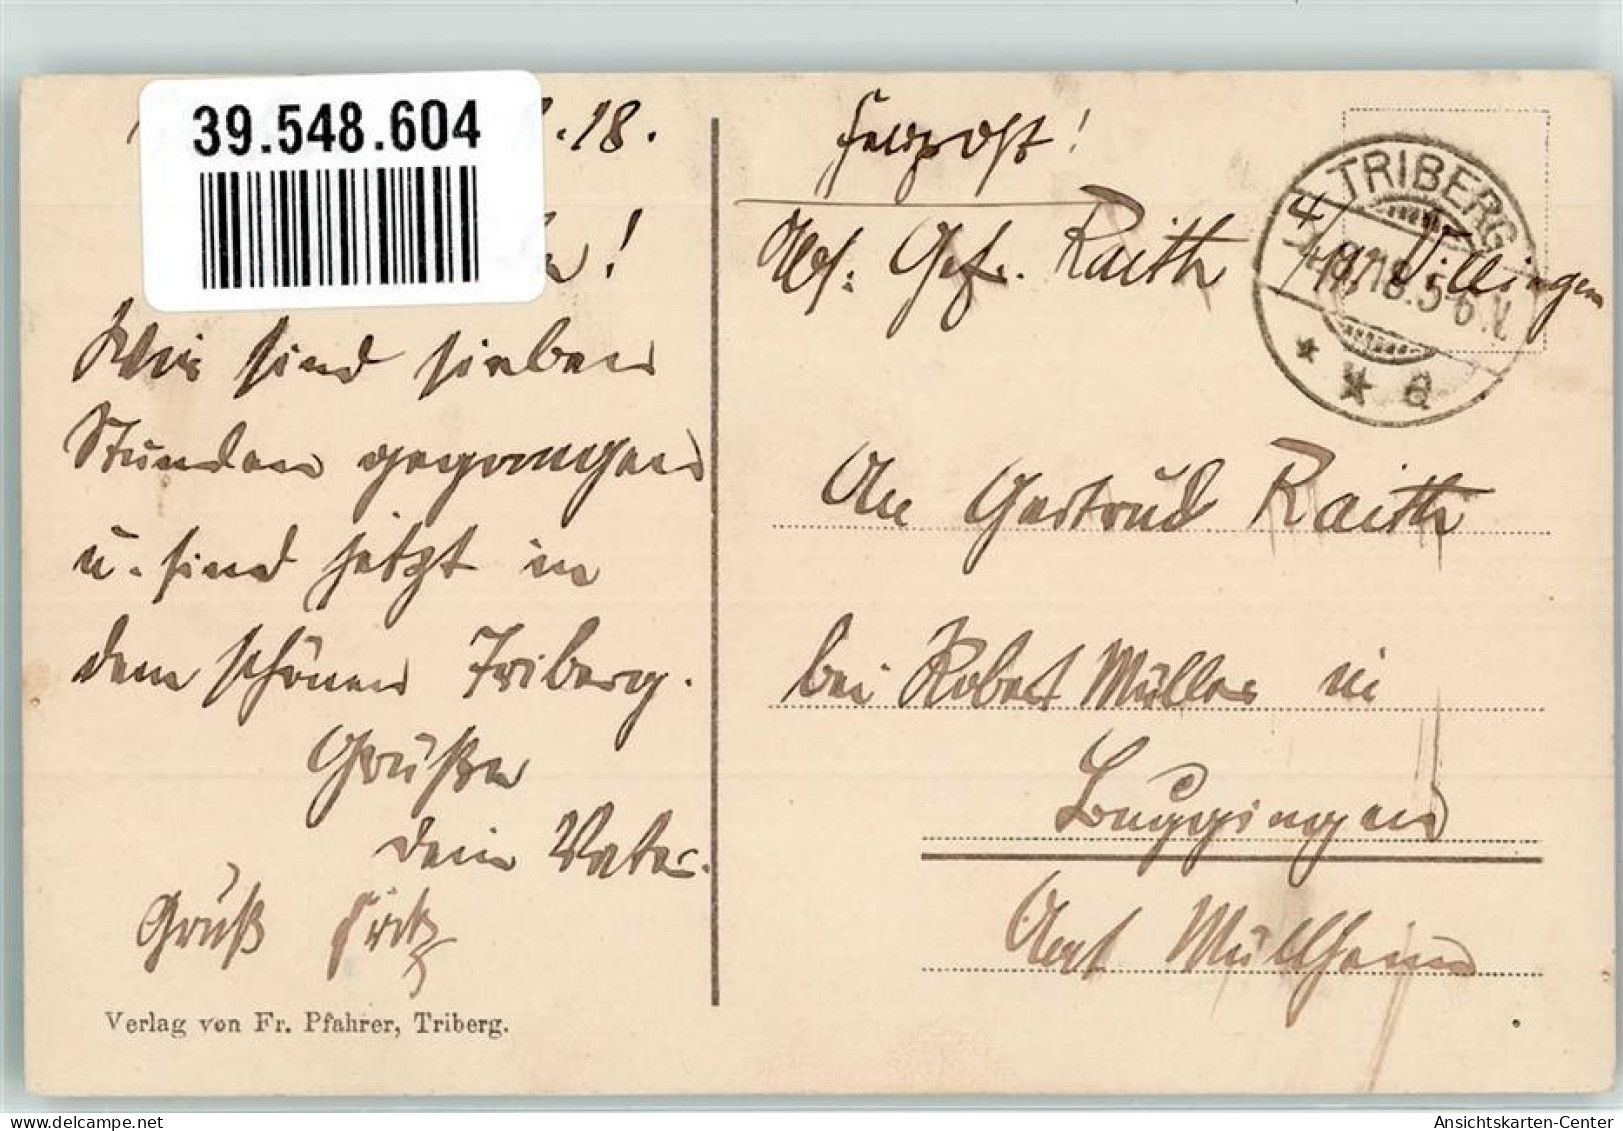 39.548.604
.18.
!
Wir sind sieben
Stunden gegangen
u. sind jetzt in
dem schönen Triberg.
Grüße
dein Vater.
Gruß Fritz
Verlag von Fr. Pfahrer, Triberg.
Feldpost!
Abs: Gefr. Raith Villingen
TRIBERG
18.5-6.V.
* * a
An Gertrud Raith
bei Robert Müller in
Buggingen
Amt Müllheim
Ansichtskarten-Center